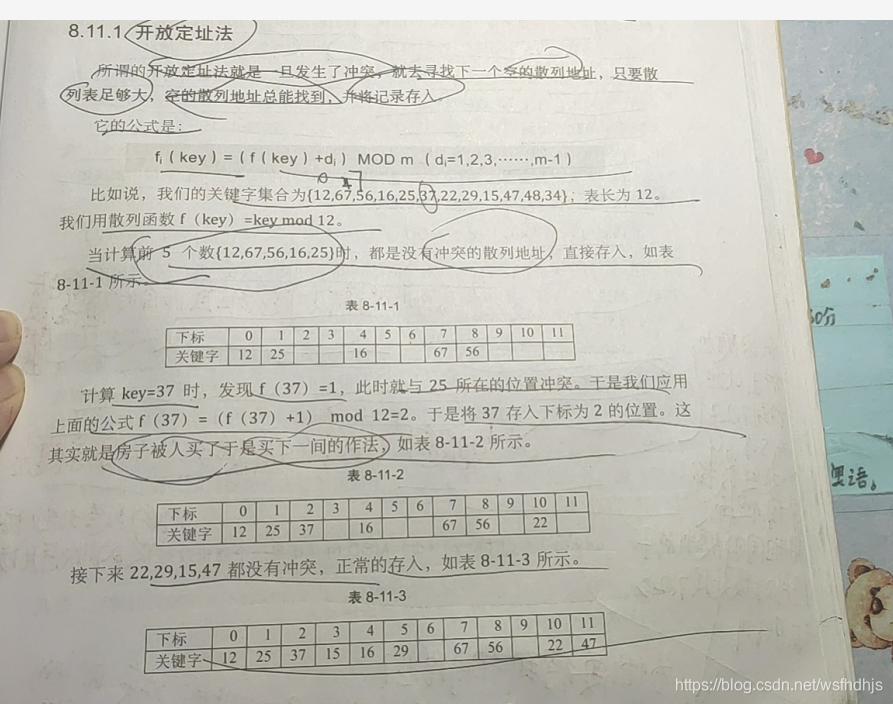 8.11.1 开放定址法
所谓的开放定址法就是一旦发生了冲突，就去寻找下一个空的散列地址，只要散
列表足够大，空的散列地址总能找到，并将记录存入。
它的公式是：
fᵢ（key）=（f（key）+dᵢ）MOD m（dᵢ=1,2,3,……,m-1）
比如说，我们的关键字集合为{12,67,56,16,25,37,22,29,15,47,48,34}；表长为 12。
我们用散列函数 f（key）=key mod 12。
当计算前 5 个数{12,67,56,16,25}时，都是没有冲突的散列地址，直接存入，如表
8-11-1 所示。
表 8-11-1
下标 0 1 2 3 4 5 6 7 8 9 10 11
关键字 12 25 16 67 56
计算 key=37 时，发现 f（37）=1，此时就与 25 所在的位置冲突。于是我们应用
上面的公式 f（37）=（f（37）+1） mod 12=2。于是将 37 存入下标为 2 的位置。这
其实就是房子被人买了于是买下一间的作法，如表 8-11-2 所示。
表 8-11-2
下标 0 1 2 3 4 5 6 7 8 9 10 11
关键字 12 25 37 16 67 56 22
接下来 22,29,15,47 都没有冲突，正常的存入，如表 8-11-3 所示。
表 8-11-3
下标 0 1 2 3 4 5 6 7 8 9 10 11
关键字 12 25 37 15 16 29 67 56 22 47
https://blog.csdn.net/wsfhdhjs